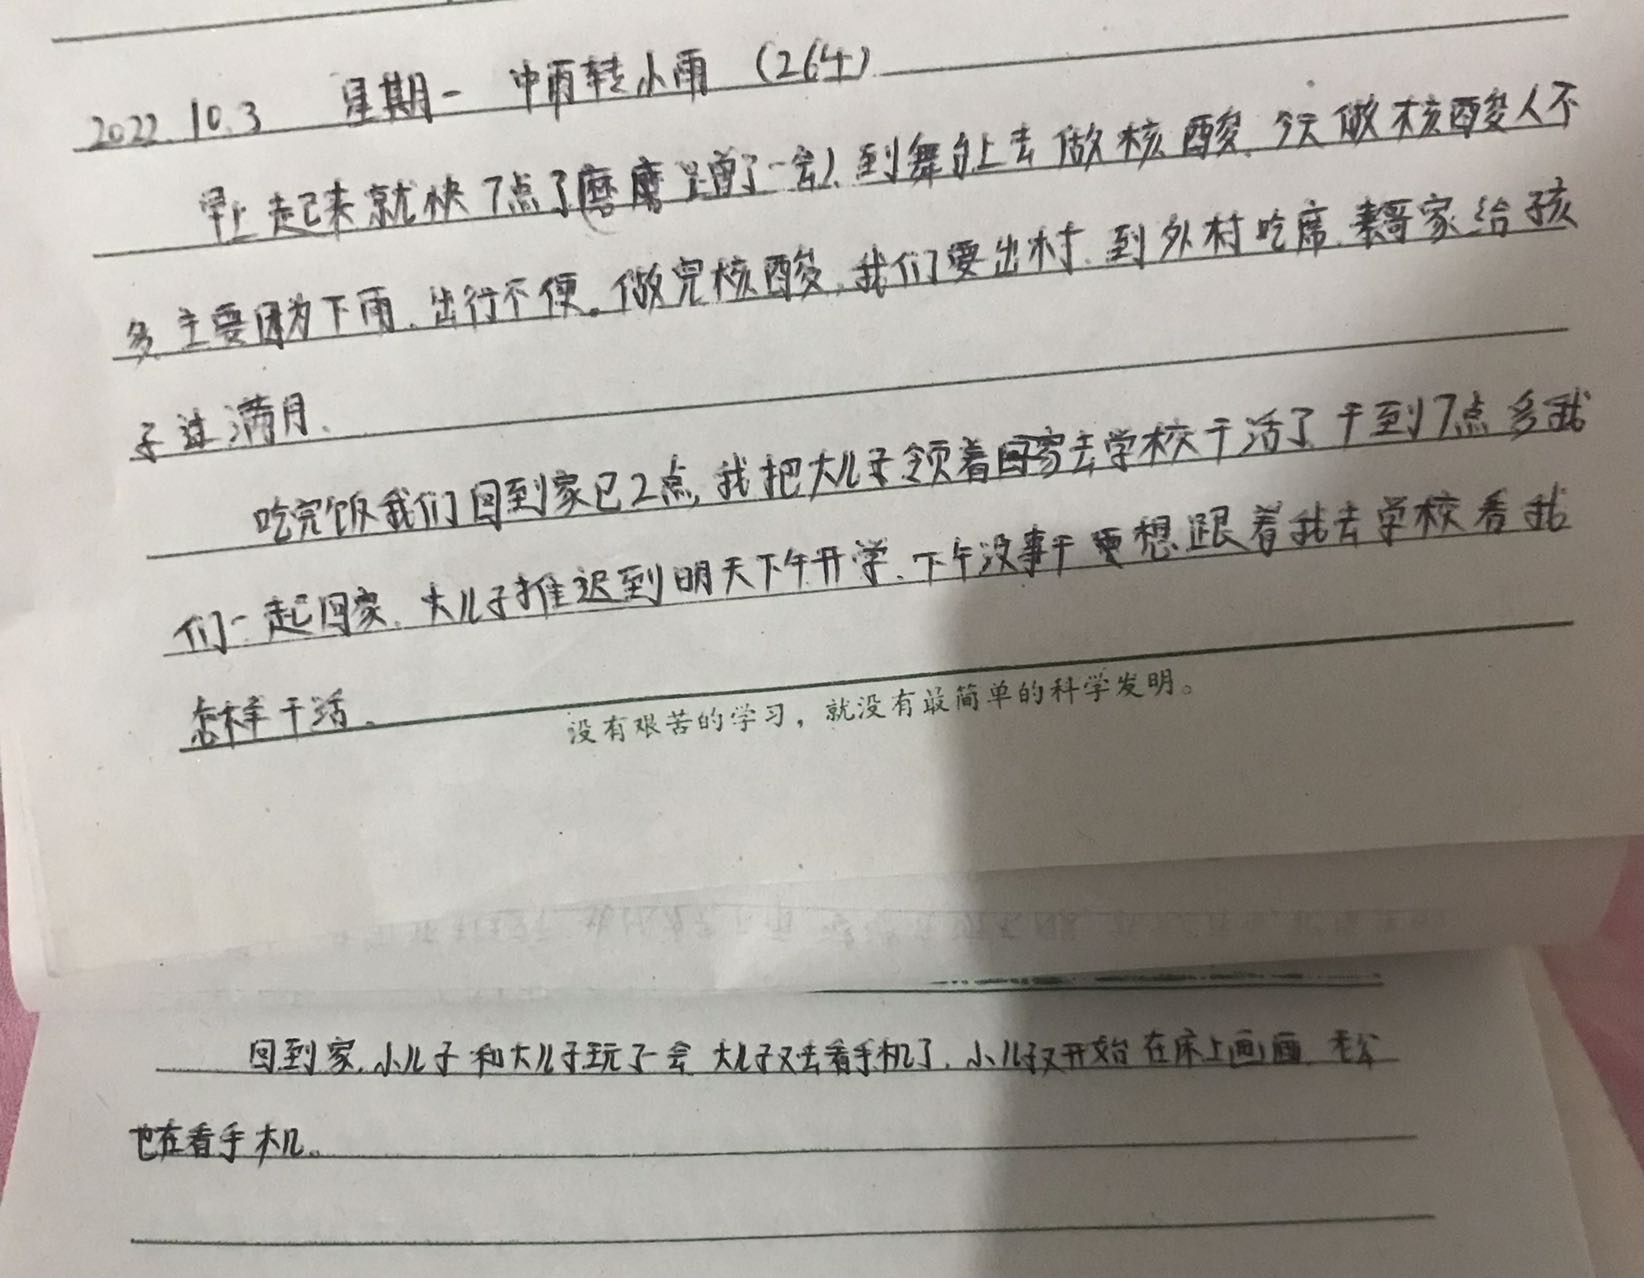 2022.10.3 星期一 中雨转小雨 (264)
早上起来就快7点了磨磨蹭了一会儿到舞台上去做核酸.今天做核酸人不
多.主要因为下雨.出行不便。做完核酸,我们要出村.到外村吃席.表哥家给孩
子过满月.
吃完饭我们回到家已2点,我把大儿子领着回家去学校干活了干到7点多我
们一起回家.大儿子推迟到明天下午开学.下午没事干更想跟着我去学校看我
怎样干活。
没有艰苦的学习，就没有最简单的科学发明。
回到家.小儿子和大儿子玩了一会 大儿子又去看手机了.小儿子又开始在床上画画.老公
也在看手机。